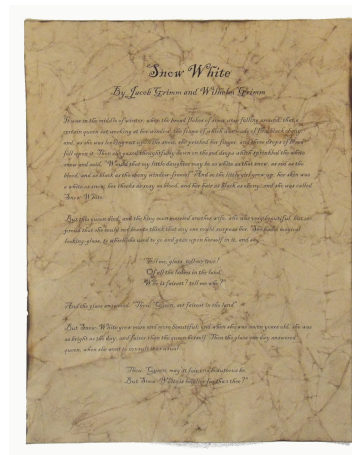 Snow White
By Jacob Grimm and Wilhelm Grimm
It was in the middle of winter, when the broad flakes of snow were falling around, that a
certain queen sat working at her window, the frame of which was made of fine black ebony;
and, as she was looking out upon the snow, she pricked her finger, and three drops of blood
fell upon it. Then she gazed thoughtfully down on the red drops which sprinkled the white
snow and said, "Would that my little daughter may be as white as that snow, as red as the
blood, and as black as the ebony window-frame!" And so the little girl grew up; her skin was
a white as snow, her cheeks as rosy as blood, and her hair as black as ebony; and she was called
Snow-White.
But this queen died; and the king soon married another wife, who was very beautiful, but so
proud that she could not bear to think that any one might surpass her. She had a magical
looking-glass, to which she used to go and gaze upon herself in it, and say,
"Tell me, glass, tell me true!
Of all the ladies in the land,
Who is fairest? tell me who?"
And the glass answered, "Thou, Queen, art fairest in the land"
But Snow-White grew more and more beautiful; and when she was seven years old, she was
as bright as the day, and fairer than the queen herself. Then the glass one day answered
queen, when she went to consult it as usual
"Thou, Queen, may st fair and beauteous be,
But Snow-White is lovelier far than thee?"